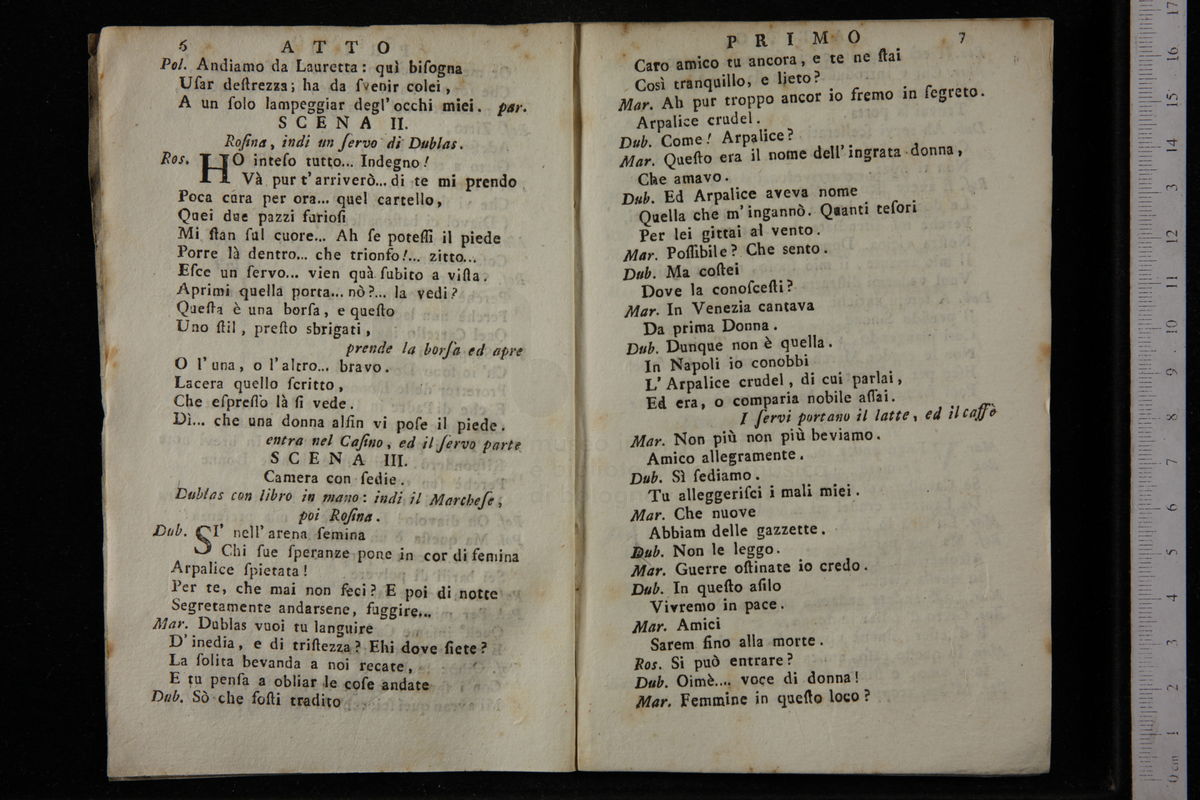 6 ATTO
Pol. Andiamo da Lauretta: quì biſogna
Uſar deſtrezza; ha da ſvenir colei,
A un ſolo lampeggiar degl'occhi miei. par.
SCENA II.
Roſina, indi un ſervo di Dublas.
Ros. HO inteſo tutto... Indegno!
Và pur t'arriverò... di te mi prendo
Poca cura per ora... quel cartello,
Quei due pazzi furioſi
Mi ſtan ſul cuore... Ah ſe poteſſi il piede
Porre là dentro... che trionfo!... zitto...
Eſce un ſervo... vien quà ſubito a viſta.
Aprimi quella porta... nò?... la vedi?
Queſta è una borſa, e queſto
Uno ſtil, preſto sbrigati,
prende la borſa ed apre
O l'una, o l'altro... bravo.
Lacera quello ſcritto,
Che eſpreſſo là ſi vede.
Dì... che una donna alfin vi poſe il piede.
entra nel Caſino, ed il ſervo parte
SCENA III.
Camera con ſedie.
Dublas con libro in mano: indi il Marcheſe,
poi Roſina.
Dub. SI' nell'arena ſemina
Chi ſue ſperanze pone in cor di femina
Arpalice ſpietata!
Per te, che mai non feci? E poi di notte
Segretamente andarsene, fuggire...
Mar. Dublas vuoi tu languire
D'inedia, e di triſtezza? Ehi dove ſiete?
La ſolita bevanda a noi recate,
E tu penſa a obliar le coſe andate
Dub. Sò che foſti tradito
PRIMO 7
Caro amico tu ancora, e te ne ſtai
Così tranquillo, e lieto?
Mar. Ah pur troppo ancor io fremo in ſegreto.
Arpalice crudel.
Dub. Come! Arpalice?
Mar. Queſto era il nome dell'ingrata donna,
Che amavo.
Dub. Ed Arpalice aveva nome
Quella che m'ingannò. Quanti teſori
Per lei gittai al vento.
Mar. Poſſibile? Che sento.
Dub. Ma coſtei
Dove la conoſceſti?
Mar. In Venezia cantava
Da prima Donna.
Dub. Dunque non è quella.
In Napoli io conobbi
L'Arpalice crudel, di cui parlai,
Ed era, o comparia nobile aſſai.
I ſervi portano il latte, ed il caffè
Mar. Non più non più beviamo.
Amico allegramente.
Dub. Sì ſediamo.
Tu alleggeriſci i mali miei.
Mar. Che nuove
Abbiam delle gazzette.
Dub. Non le leggo.
Mar. Guerre oſtinate io credo.
Dub. In queſto aſilo
Vivremo in pace.
Mar. Amici
Sarem fino alla morte.
Ros. Si può entrare?
Dub. Oimè.... voce di donna!
Mar. Femmine in queſto loco?
0 cm 1 2 3 4 5 6 7 8 9 10 11 12 13 14 15 16 17